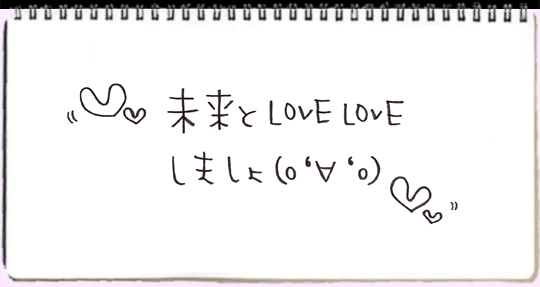 未来とLOVE LOVE
しましょ(o'∀'o)